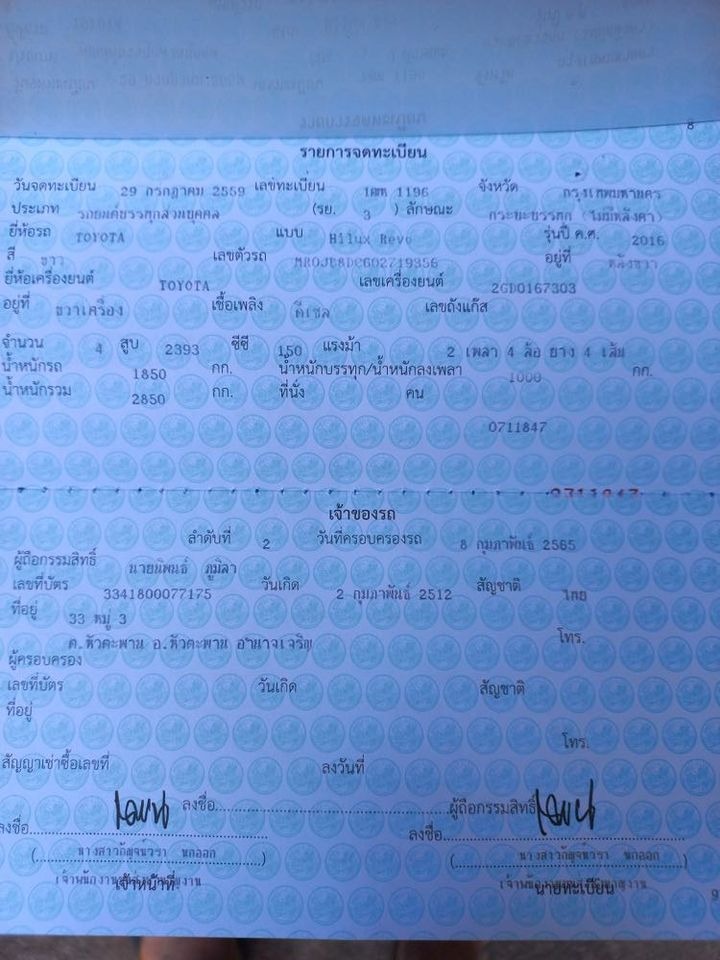 8
รายการจดทะเบียน
วันจดทะเบียน 29 กรกฎาคม 2559 เลขทะเบียน 1196 จังหวัด กรุงเทพมหานคร
ประเภท รถยนต์บรรทุกส่วนบุคคล (รย. 3 ) ลักษณะ กระบะบรรทุก (ไม่มีหลังคา)
ยี่ห้อรถ TOYOTA แบบ Hilux Revo รุ่นปี ค.ศ. 2016
สี ขาว เลขตัวรถ MR0JB8DC602719356 อยู่ที่
ยี่ห้อเครื่องยนต์ TOYOTA เลขเครื่องยนต์ 2GD0167303
อยู่ที่ ขวาเครื่อง เชื้อเพลิง ดีเซล เลขถังแก๊ส
จำนวน 4 สูบ 2393 ซีซี 150 แรงม้า 2 เพลา 4 ล้อ ยาง 4 เส้น
น้ำหนักรถ 1850 กก. น้ำหนักบรรทุก/น้ำหนักลงเพลา 1000 กก.
น้ำหนักรวม 2850 กก. ที่นั่ง คน
0711847
0711847
เจ้าของรถ
ลำดับที่ 2 วันที่ครอบครองรถ 8 กุมภาพันธ์ 2565
ผู้ถือกรรมสิทธิ์ นายนิพนธ์ ภูมิลา
เลขที่บัตร 3341800077175 วันเกิด 2 กุมภาพันธ์ 2512 สัญชาติ ไทย
ที่อยู่ 33 หมู่ 3
ต.หัวตะพาน อ.หัวตะพาน อำนาจเจริญ โทร.
ผู้ครอบครอง
เลขที่บัตร วันเกิด สัญชาติ
ที่อยู่
โทร.
สัญญาเช่าซื้อเลขที่ ลงวันที่
ลงชื่อ ผู้ถือกรรมสิทธิ์
ลงชื่อ ลงชื่อ
เจ้าหน้าที่ นายทะเบียน
9